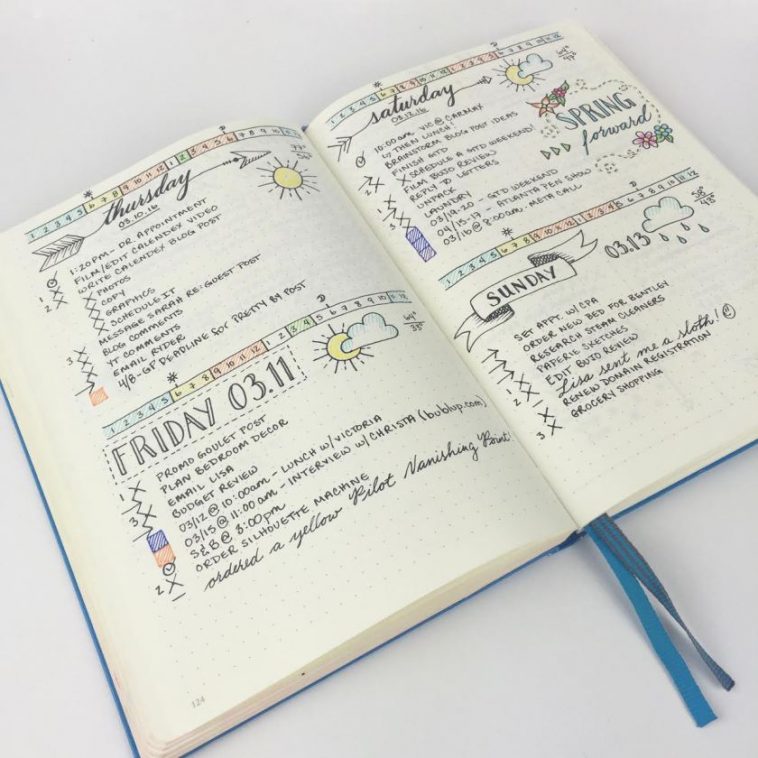 1 2 3 4 5 6 7 8 9 10 11 12 1 2 3 4 5 6 7 8 9 10 11 12
thursday
03.10.16
77°
1:20PM - DR. APPOINTMENT
FILM/EDIT CALENDEX VIDEO
1 WRITE CALENDEX BLOG POST
2 PHOTOS
COPY
GRAPHICS
SCHEDULE IT
MESSAGE SARAH RE: GUEST POST
BLOG COMMENTS
3 YT COMMENTS
EMAIL RYDER
4/8 - GP DEADLINE FOR PRETTY BY POST
1 2 3 4 5 6 7 8 9 10 11 12 1 2 3 4 5 6 7 8 9 10 11 12
FRIDAY 03.11
64°
PROMO GOULET POST
PLAN BEDROOM DECOR
1 EMAIL LISA
3 BUDGET REVIEW
03/12 @ 10:00am - LUNCH W/VICTORIA
03/15 @ 11:00am - INTERVIEW W/CHRISTA (bublup.com)
S&B @ 8:00pm
ORDER SILHOUETTE MACHINE
2 ordered a yellow Pilot Vanishing Point!
124
1 2 3 4 5 6 7 8 9 10 11 12 1 2 3 4 5 6 7 8 9 10 11 12
saturday
03.12.16
64°
47°
SPRING
forward
10:00am VIC @ CARMAX
↳ THEN LUNCH!
BRAINSTORM BLOG POST IDEAS
FINISH GTD
SCHEDULE A GTD WEEKEND!
2 FILM BUJO REVIEW
REPLY TO LETTERS
1 UNPACK
3 LAUNDRY
03/19-20 - GTD WEEKEND
04/15-17 - ATLANTA PEN SHOW
03/16 @ 8:00am - META CALL
1 2 3 4 5 6 7 8 9 10 11 12 1 2 3 4 5 6 7 8 9 10 11 12
SUNDAY
03.13
SET APPT. W/CPA
ORDER NEW BED FOR BENTLEY
RESEARCH STEAM CLEANERS
PAPERIE SKETCHES
1 EDIT BUJO REVIEW
Lisa sent me a sloth!
2 RENEW DOMAIN REGISTRATION
3 GROCERY SHOPPING